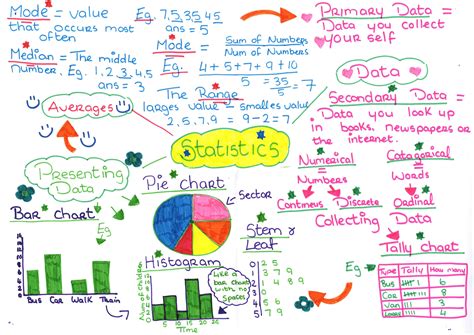 Mode = value
that occurs most
often
Eg. 7,5,35,45
ans = 5
Median = The middle
number. Eg. 1,2,3,4,5
ans = 3
Mode = Sum of Numbers
Num of Numbers
Eg. 4 + 5 + 7 + 9 + 10
5 = 35/5 = 7
The Range
larges value - smalles value
2, 5, 7, 9 = 9-2 = 7
Averages
Primary Data =
Data you collect
your self
Data
Secondary Data =
Data you look up
in books, newspapers or
the internet.
Numerical
=
Numbers
Catagorical
=
Words
Contineus Discrete
Ordinal
Collecting Data
Statistics
Presenting
Data
Bar chart
Eg
Bus Car Walk Train
Pie chart
Sector
Histogram
5 10 15 20 25
Time
Like a
bar chart
with no
spaces
Stem &
Leaf
0 2 5
Tally chart
Eg
Type Tally How many
Bus 6
Car 8
Van 3
Lorries 4